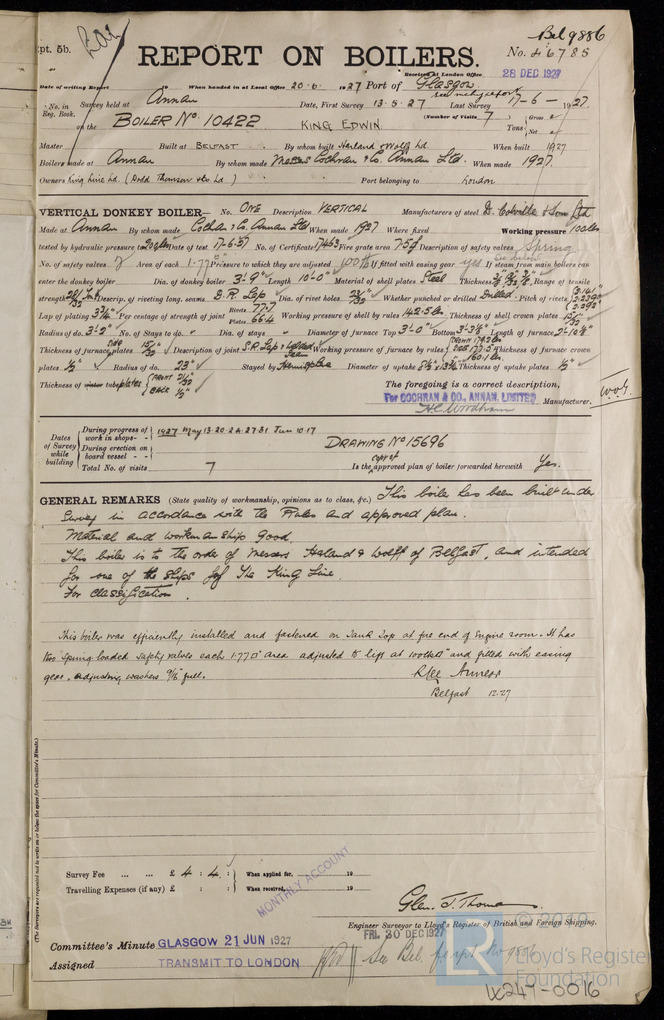 Bel 9886
Rpt. 5b.
REPORT ON BOILERS.
No. 46785
Received at London Office 28 DEC 1927
Date of writing Report 19 When handed in at Local Office 20·6· 1927 Port of Glasgow
No. in Reg. Book. Survey held at Annan Date, First Survey 13·5·27 Last Survey 17-6- 1927
on the BOILER No 10422 KING EDWIN (Number of Visits 7) Tons Gross Net
Master Built at BELFAST By whom built Harland & Wolff Ld. When built 1927
Boilers made at Annan By whom made Messrs Cochran & Co. Annan Ltd. When made 1927.
Owners King Line Ld. (Dodd Thomson & Co Ld.) Port belonging to London
VERTICAL DONKEY BOILER— No. ONE Description VERTICAL Manufacturers of steel D. Colville & Sons Ltd
Made at Annan By whom made Cochran & Co. Annan Ltd When made 1927 Where fixed Working pressure 100 lbs
tested by hydraulic pressure to 200 lbs Date of test 17-6-27 No. of Certificate 17463 Fire grate area Description of safety valves Spring
No. of safety valves 2 Area of each 1·77 Pressure to which they are adjusted 100 If fitted with easing gear yes If steam from main boilers can
enter the donkey boiler See below Dia. of donkey boiler 3'-9" Length 10'-0" Material of shell plates Steel Thickness Range of tensile
strength Descrip. of riveting long. seams D.R. Lap Dia. of rivet holes Whether punched or drilled Drilled Pitch of rivets
Lap of plating Per centage of strength of joint Rivets 77.7 Plates 66.4 Working pressure of shell by rules 142.5 lbs Thickness of shell crown plates
Radius of do. 3'-9" No. of Stays to do. Dia. of stays Diameter of furnace Top 3'-0" Bottom 3'-3⅜" Length of furnace
Thickness of furnace plates Description of joint S.R. Lap Working pressure of furnace by rules Thickness of furnace crown
plates ½" Radius of do. 23" Stayed by Diameter of uptake Thickness of uptake plates ½"
Thickness of tube plates FRONT 21/32 BACK ½"
The foregoing is a correct description,
For COCHRAN & CO., ANNAN, LIMITED Manufacturer.
Dates of Survey while building
During progress of work in shops - - 1927 May 13·20·24·27·31 Jun 10·17
During erection on board vessel - - -
Total No. of visits 7
DRAWING No 15696
Is the copy of approved plan of boiler forwarded herewith Yes.
GENERAL REMARKS (State quality of workmanship, opinions as to class, &c.) This boiler has been built under
Survey in accordance with the Rules and approved plan.
Material and workmanship Good.
This boiler is to the order of Messrs Harland & Wolff of Belfast, and intended
for one of the ships of The King Line.
For Classification.
This boiler was efficiently installed and fastened on Tank Top at fore end of Engine room. It has
two spring loaded safety valves each 1·77□" area adjusted to lift at 100 lbs/□" and fitted with easing
gear. adjusting washers 9/16 full.
Belfast 12·27
(The Surveyors are requested not to write on or below the space for Committee's Minute.)
Survey Fee ... ... £ 4 : 4 : When applied for, 19
Travelling Expenses (if any) £ : : When received, 19
MONTHLY ACCOUNT
Glen. J. Thomas
Engineer Surveyor to Lloyd's Register of British and Foreign Shipping.
FRI. 30 DEC 1927
Committee's Minute GLASGOW 21 JUN 1927
Assigned TRANSMIT TO LONDON
See Bel.
© 2019
LR
Lloyd's Register
Foundation
W247-0016